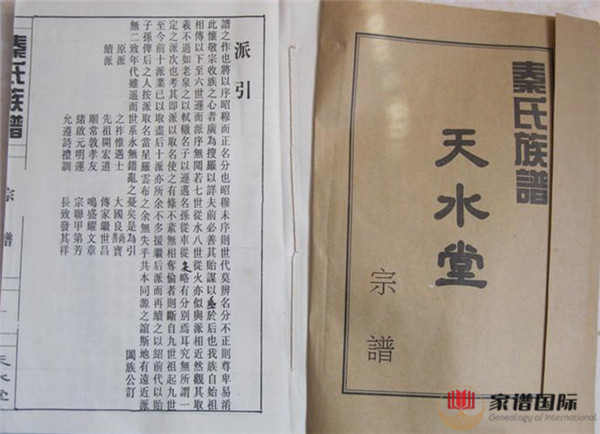 秦氏族譜
天水堂
宗譜
派引
譜之作也將以序昭穆而正名分也昭穆未序則世代莫辨名分不正則尊卑易淆
此懷敬宗收族之心者廣為搜羅以詳夫前必善其貽謀以垂於后也我族自始祖
相傳以下至六世運而派序無聞若七世從水八世從火亦似與派相近然觀其取
義不過如老泉之以軾轍名子以運邁名孫從車從辶略有分別焉耳究無所謂一
定之派次也考其即派以取名使之有條不紊無相奪倫者則斷自九世祖起九世
至今前十派業已取盡后十派亦所余不多援繼后派而再續之以紹前代以貽
子孫俾后之人按派取名當星羅雲布之余無失乎共本同源之誼斯地有遠近派
無二致年代雖遥而世系永無錯亂之憂矣是為引 闔族公訂
原派 之祚惟遇士 大國良寶
先祖開宏道 傳家繼世昌
續派 順常敦孝友 鳴盛耀文章
緒啟元明運 宗聯甲第芳
允遵詩禮訓 長致發其祥
秦氏族譜
宗譜
天水堂
家谱国际
Genealogy of International